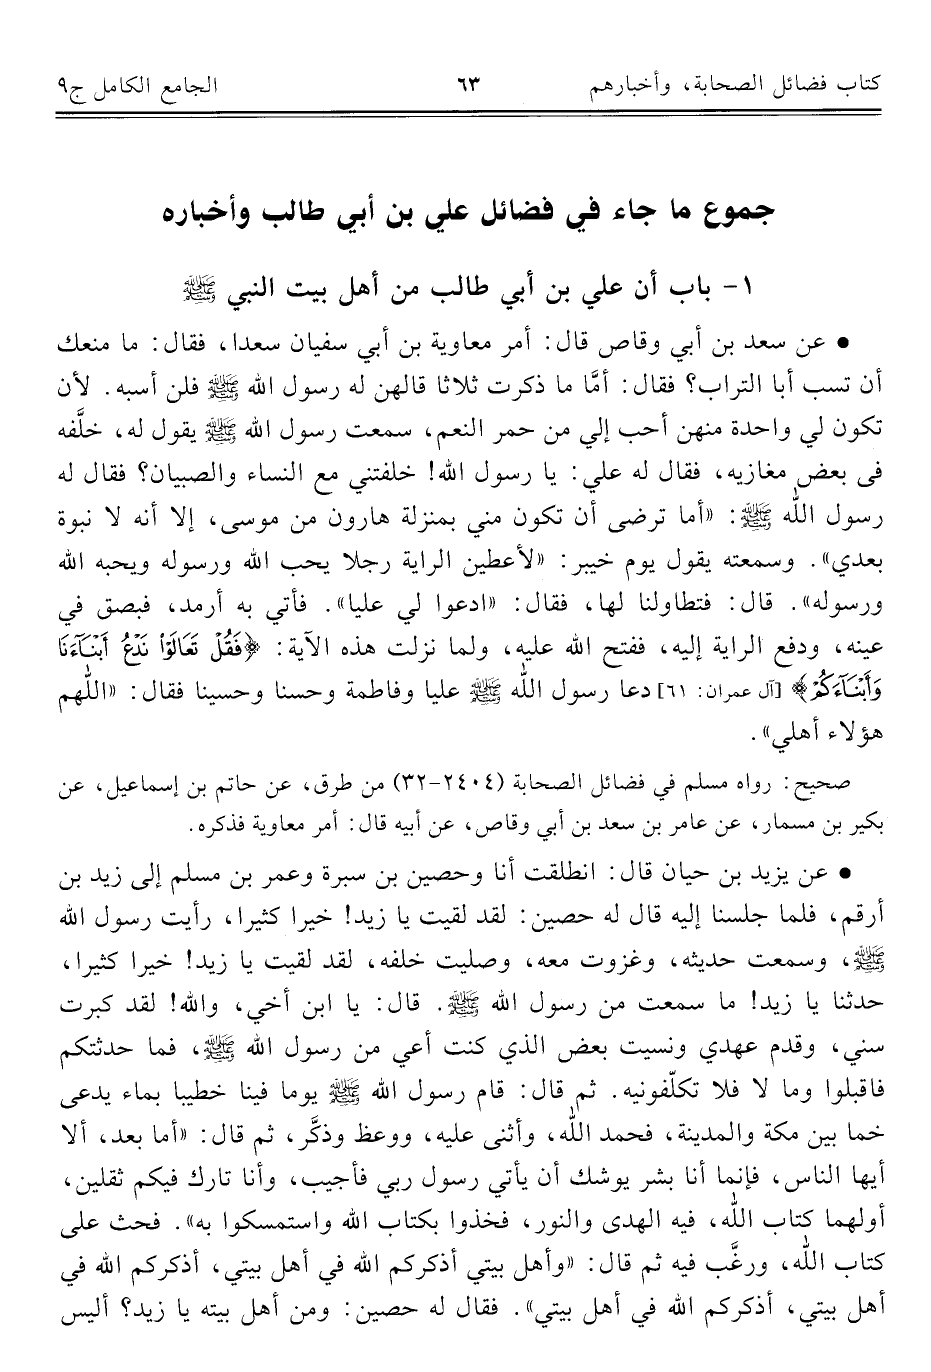 كتاب فضائل الصحابة، وأخبارهم ٦٣ الجامع الكامل ج٩
جموع ما جاء في فضائل علي بن أبي طالب وأخباره
١- باب أن علي بن أبي طالب من أهل بيت النبي ﷺ
• عن سعد بن أبي وقاص قال: أمر معاوية بن أبي سفيان سعدا، فقال: ما منعك
أن تسب أبا التراب؟ فقال: أمَّا ما ذكرت ثلاثا قالهن له رسول الله ﷺ فلن أسبه. لأن
تكون لي واحدة منهن أحب إلي من حمر النعم، سمعت رسول الله ﷺ يقول له، خلَّفه
في بعض مغازيه، فقال له علي: يا رسول الله! خلفتني مع النساء والصبيان؟ فقال له
رسول الله ﷺ: «أما ترضى أن تكون مني بمنزلة هارون من موسى، إلا أنه لا نبوة
بعدي». وسمعته يقول يوم خيبر: «لأعطين الراية رجلا يحب الله ورسوله ويحبه الله
ورسوله». قال: فتطاولنا لها، فقال: «ادعوا لي عليا». فأتي به أرمد، فبصق في
عينه، ودفع الراية إليه، ففتح الله عليه، ولما نزلت هذه الآية: ﴿فَقُلْ تَعَالَوْا۟ نَدْعُ أَبْنَآءَنَا
وَأَبْنَآءَكُمْ﴾ [آل عمران: ٦١] دعا رسول الله ﷺ عليا وفاطمة وحسنا وحسينا فقال: «اللّهم
هؤلاء أهلي».
صحيح: رواه مسلم في فضائل الصحابة (٢٤٠٤-٣٢) من طرق، عن حاتم بن إسماعيل، عن
بكير بن مسمار، عن عامر بن سعد بن أبي وقاص، عن أبيه قال: أمر معاوية فذكره.
• عن يزيد بن حيان قال: انطلقت أنا وحصين بن سبرة وعمر بن مسلم إلى زيد بن
أرقم، فلما جلسنا إليه قال له حصين: لقد لقيت يا زيد! خيرا كثيرا، رأيت رسول الله
ﷺ، وسمعت حديثه، وغزوت معه، وصليت خلفه، لقد لقيت يا زيد! خيرا كثيرا،
حدثنا يا زيد! ما سمعت من رسول الله ﷺ. قال: يا ابن أخي، والله! لقد كبرت
سني، وقدم عهدي ونسيت بعض الذي كنت أعي من رسول الله ﷺ، فما حدثتكم
فاقبلوا وما لا فلا تكلّفونيه. ثم قال: قام رسول الله ﷺ يوما فينا خطيبا بماء يدعى
خما بين مكة والمدينة، فحمد الله، وأثنى عليه، ووعظ وذكَّر، ثم قال: «أما بعد، ألا
أيها الناس، فإنما أنا بشر يوشك أن يأتي رسول ربي فأجيب، وأنا تارك فيكم ثقلين،
أولهما كتاب الله، فيه الهدى والنور، فخذوا بكتاب الله واستمسكوا به». فحث على
كتاب الله، ورغَّب فيه ثم قال: «وأهل بيتي أذكركم الله في أهل بيتي، أذكركم الله في
أهل بيتي، أذكركم الله في أهل بيتي». فقال له حصين: ومن أهل بيته يا زيد؟ أليس